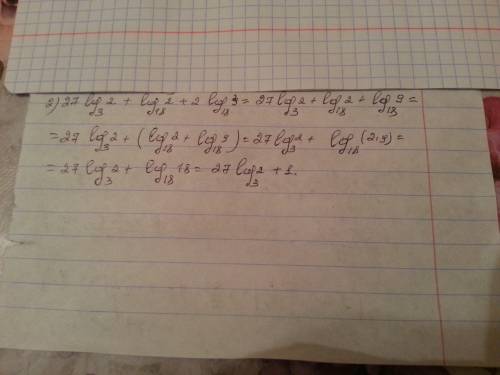 2) 27 log₃2 + log₁₈2 + 2 log₁₈3 = 27 log₃2 + log₁₈2 + log₁₈9 =
= 27 log₃2 + (log₁₈2 + log₁₈9) = 27 log₃2 + log₁₈(2·9) =
= 27 log₃2 + log₁₈18 = 27 log₃2 + 1.